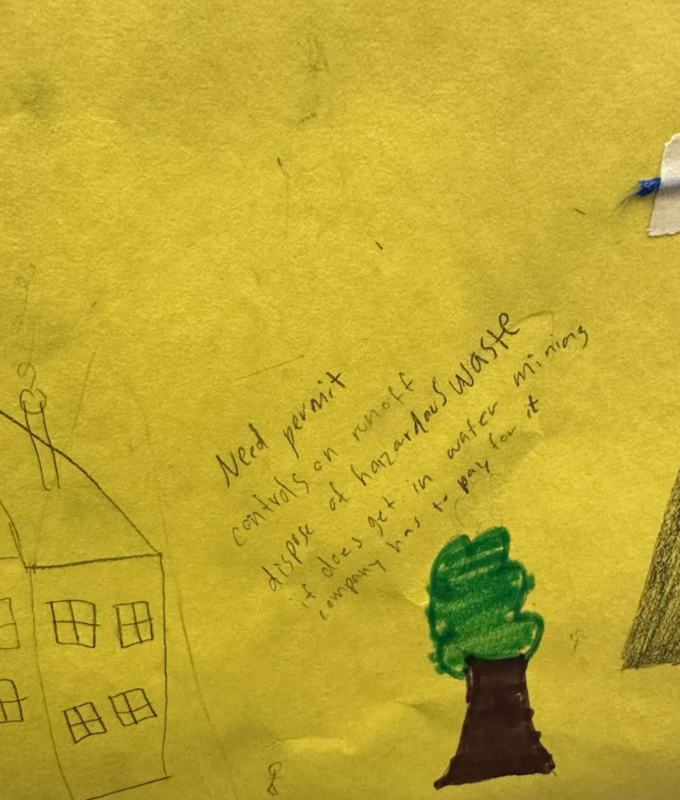 Need permit
controls on runoff
dispose of hazardous waste
if does get in water mining
company has to pay for it